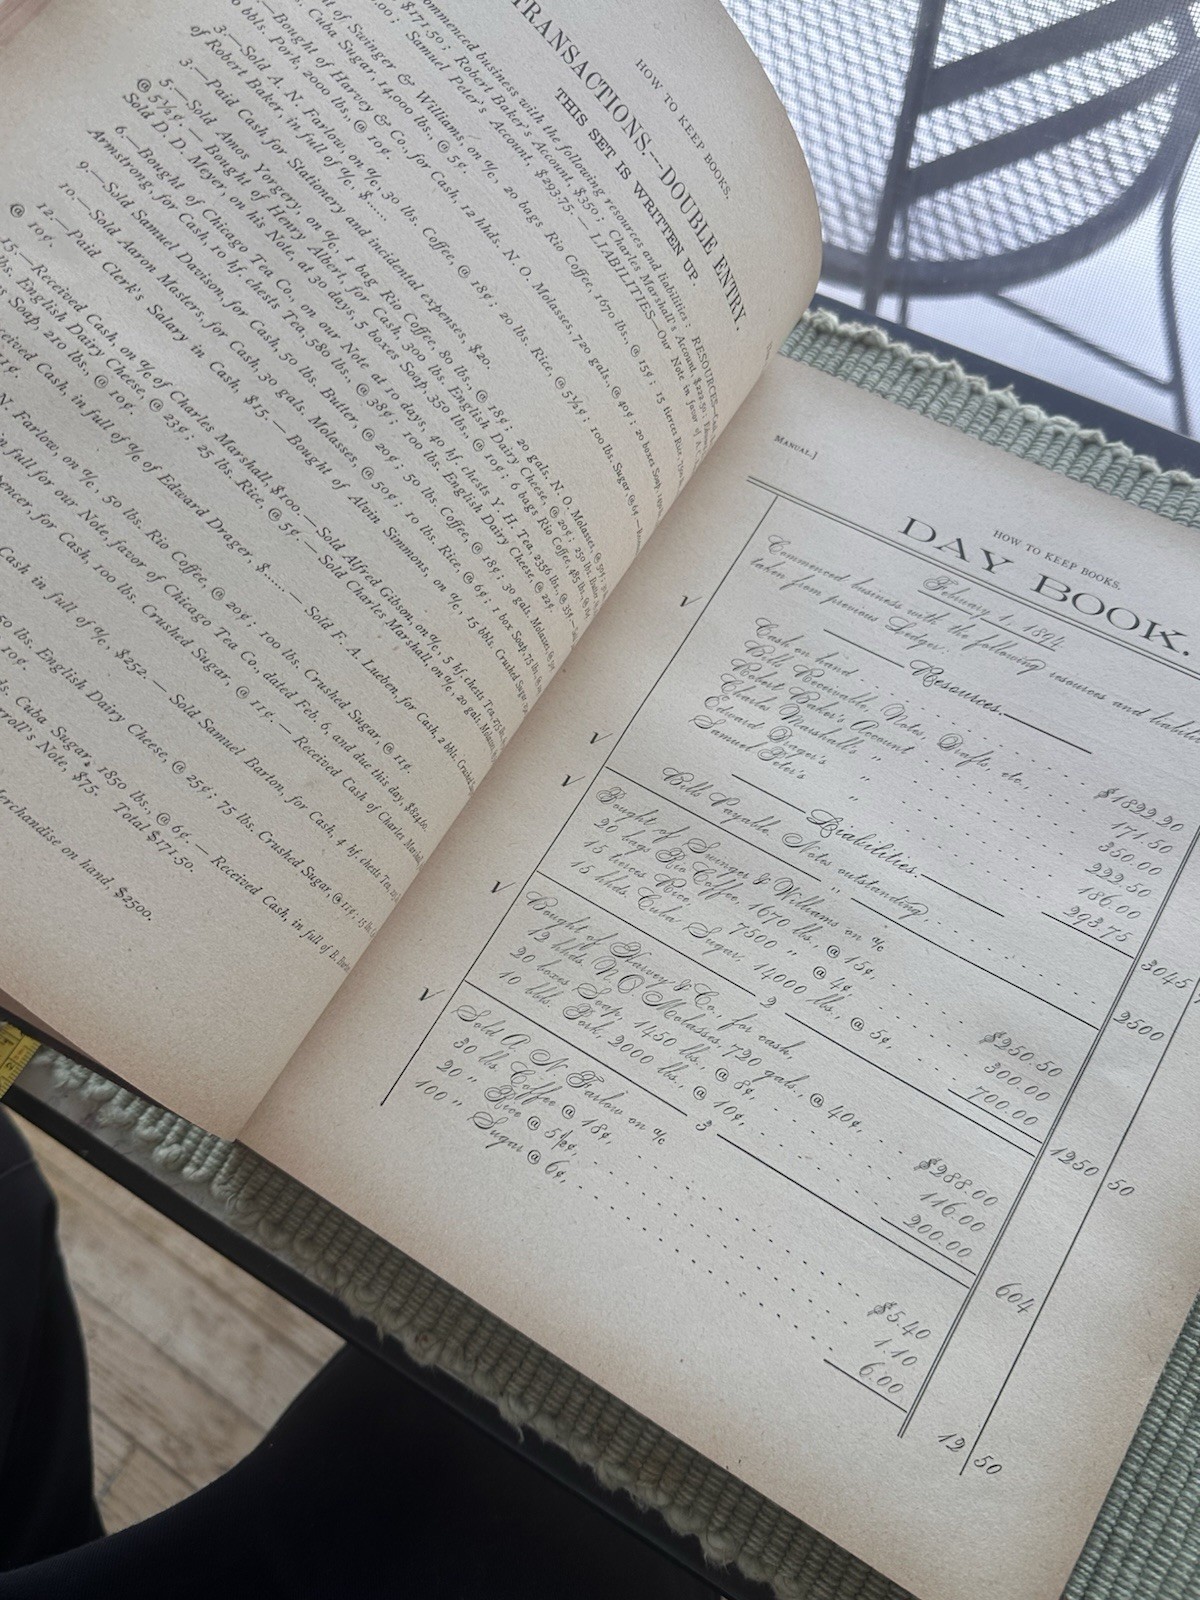 HOW TO KEEP BOOKS.
TRANSACTIONS.—DOUBLE ENTRY.
THIS SET IS WRITTEN UP.
ommenced business with the following resources and liabilities: RESOURCES—
$171.50; Robert Baker's Account, $350; Charles Marshall's Account, $222.50;
Samuel Peter's Account, $293.75. — LIABILITIES—Our Note in favor of
t of Swinger & Williams, on a/c, 20 bags Rio Coffee, 1670 lbs., @ 15¢; 15 tierces Rice,
s. Cuba Sugar, 14,000 lbs., @ 5¢.
—Bought of Harvey & Co., for Cash, 12 hhds. N. O. Molasses, 720 gals., @ 40¢; 20 boxes Soap,
0 bbls. Pork, 2000 lbs., @ 10¢.
3.—Sold A. N. Farlow, on a/c, 30 lbs. Coffee, @ 18¢; 20 lbs. Rice, @ 5½¢; 100 lbs. Sugar, @ 6¢.
of Robert Baker, in full of a/c, $......
3.—Paid Cash for Stationery and incidental expenses, $20.
5.—Sold Amos Yorgery, on a/c, 1 bag Rio Coffee, 80 lbs., @ 18¢; 20 gals. N. O. Molasses,
@ 5½¢. — Bought of Henry Albert, for Cash, 300 lbs. English Dairy Cheese, @ 20¢;
Sold D. D. Meyer, on his Note, at 30 days, 5 boxes Soap, 350 lbs., @ 10¢; 6 bags Rio Coffee,
6.—Bought of Chicago Tea Co., on our Note at 10 days, 40 hf. chests Y. H. Tea,
Armstrong, for Cash, 10 hf. chests Tea, 580 lbs., @ 38¢; 100 lbs. English Dairy Cheese, @ 22¢.
9.—Sold Samuel Davison, for Cash, 50 lbs. Butter, @ 20¢; 50 lbs. Coffee, @ 18¢; 30 gals. Molasses,
10.—Sold Aaron Masters, for Cash, 30 gals. Molasses, @ 50¢; 10 lbs. Rice, @ 6¢; 1 box Soap, 75 lbs.,
12.—Paid Clerk's Salary in Cash, $15. — Bought of Alvin Simmons, on a/c, 15 bbls. Crushed Sugar
@ 10¢.
15.—Received Cash, on a/c of Charles Marshall, $100.—Sold Alfred Gibson, on a/c, 5 hf. chests Tea,
lbs. English Dairy Cheese, @ 23¢; 25 lbs. Rice, @ 5¢. — Sold Charles Marshall, on a/c, 20 gals.
Soap, 210 lbs., @ 10¢.
ceived Cash, in full of a/c of Edward Drager, $...... — Sold F. A. Lueben, for Cash, 2 bbls. Crushed
1¢.
N. Farlow, on a/c, 50 lbs. Rio Coffee, @ 20¢; 100 lbs. Crushed Sugar, @ 11¢.
n full for our Note, favor of Chicago Tea Co., dated Feb. 6, and due this day,
encer, for Cash, 100 lbs. Crushed Sugar, @ 11¢. — Received Cash of Charles
Cash in full of a/c, $252. — Sold Samuel Barton, for Cash, 4 hf. chests Tea,
0 lbs. English Dairy Cheese, @ 25¢; 75 lbs. Crushed Sugar, @ 11¢;
10¢.
ds. Cuba Sugar, 1850 lbs., @ 6¢. — Received Cash, in full of
rroll's Note, $75. Total $171.50.
erchandise on hand, $2500.
MANUAL.]
HOW TO KEEP BOOKS.
DAY BOOK.
February 1, 1894.
Commenced business with the following resources and
taken from previous Ledger:
Resources.
Cash on hand $1822.20
Bills Receivable, Notes, Drafts, etc., 171.50
Robert Baker's Account 350.00
Charles Marshall's " 222.50
Edward Drager's " 186.00
Samuel Peter's " 293.75
3045
Liabilities.
Bills Payable, Notes outstanding 2500
Bought of Swinger & Williams on a/c
20 bags Rio Coffee, 1670 lbs., @ 15¢, $250.50
15 tierces Rice, 7500 " @ 4¢, 300.00
15 hhds. Cuba Sugar, 14000 lbs., @ 5¢, 700.00
1250 50
2
Bought of Harvey & Co., for cash,
12 hhds. N. O. Molasses, 720 gals., @ 40¢, $288.00
20 boxes Soap, 1450 lbs., @ 8¢, 116.00
10 bbls. Pork, 2000 lbs., @ 10¢, 200.00
604
3
Sold A. N. Farlow on a/c
30 lbs. Coffee @ 18¢, $5.40
20 " Rice @ 5½¢, 1.10
100 " Sugar @ 6¢, 6.00
12 50